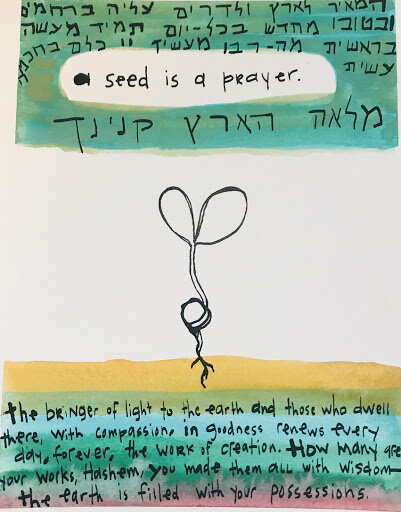 המאיר לארץ ולדרים עליה ברחמים
ובטובו מחדש בכל-יום תמיד מעשה
בראשית מה-רבו מעשיך יי כלם בחכמה
עשית
a seed is a prayer.
מלאה הארץ קנינך
the bringer of light to the earth and those who dwell
there, with compassion, in goodness renews every
day, forever, the work of creation. How many are
your works, Hashem, you made them all with wisdom—
the earth is filled with your possessions.